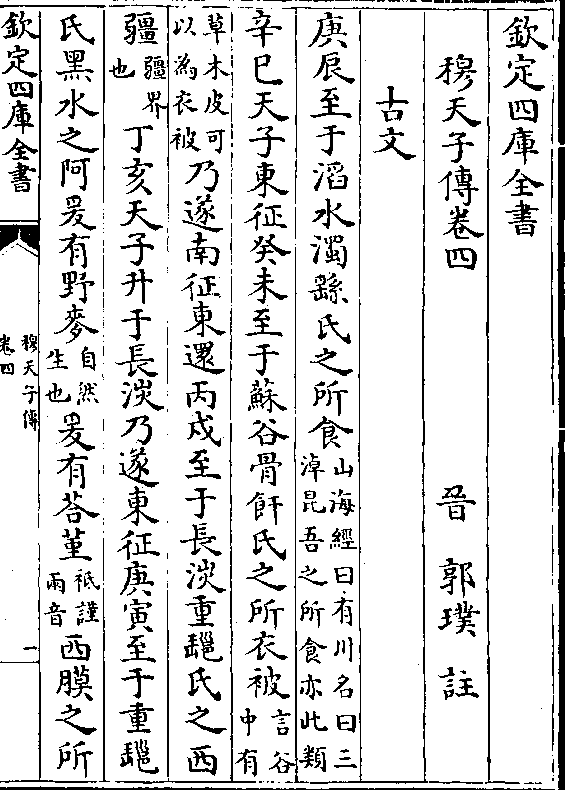 欽定四庫全書
穆天子傳卷四
晉 郭璞 註
古文
庚辰至于滔水濁繇氏之所食山海經曰有川名曰三淖昆吾之所食亦此類
辛巳天子東征癸未至于蘇谷骨飦氏之所衣被言谷中有
草木皮可以為衣被乃遂南征東還丙戌至于長淡重䣛氏之西
疆疆界也丁亥天子升于長淡乃遂東征庚寅至于重䣛
氏黑水之阿爰有野麥自然生也爰有荅堇祇謹兩音西膜之所
欽定四庫全書
穆天子傳
卷四
一